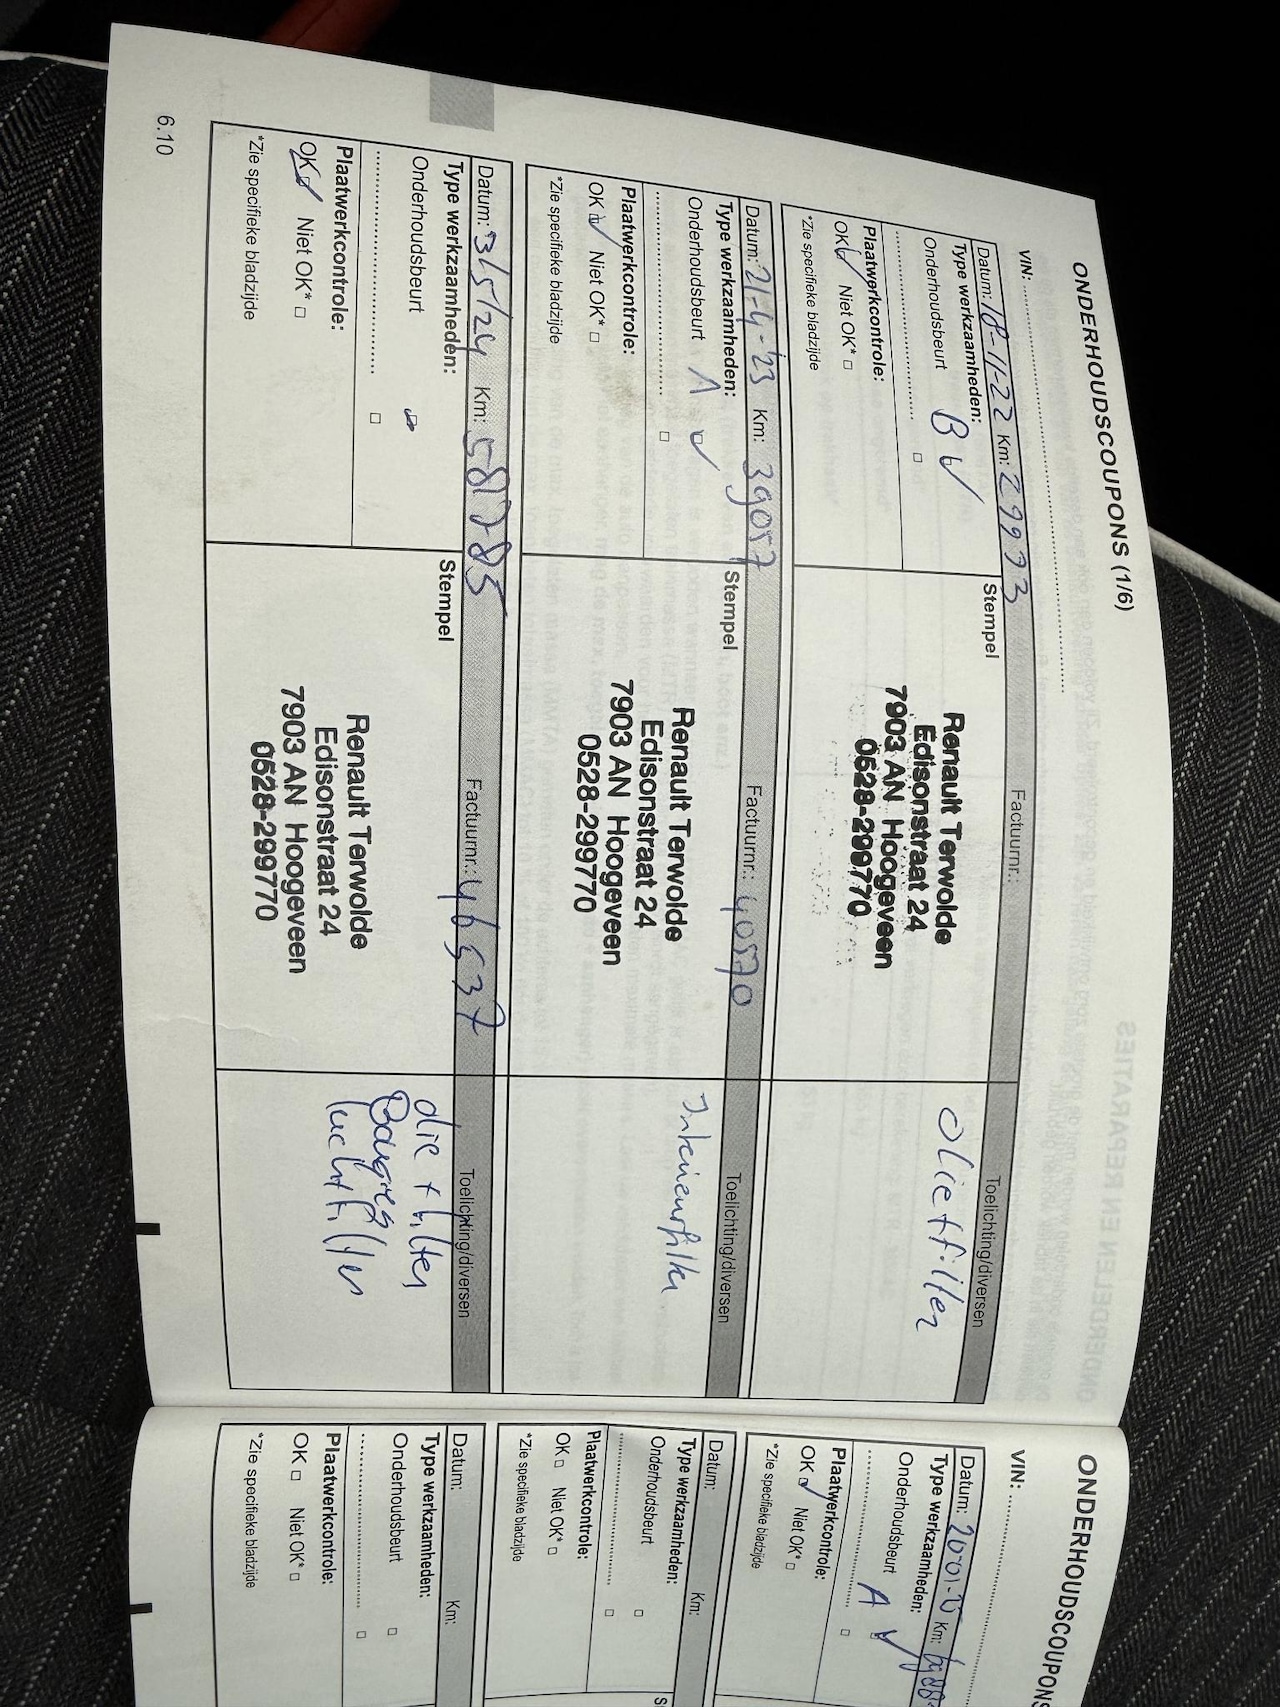 ONDERHOUDSCOUPONS (1/6)
VIN:
Datum: 18-11-22 Km: 29993 Factuurnr.: Toelichting/diversen
Type werkzaamheden: Stempel
Onderhoudsbeurt B
Olie + filter
Plaatwerkcontrole:
OK Niet OK*
*Zie specifieke bladzijde
Renault Terwolde
Edisonstraat 24
7903 AN Hoogeveen
0528-299770
Datum: 21-4-'23 Km: 39057 Factuurnr.: 40570 Toelichting/diversen
Type werkzaamheden: Stempel
Onderhoudsbeurt A
Interieurfilter
Plaatwerkcontrole:
OK Niet OK*
*Zie specifieke bladzijde
Renault Terwolde
Edisonstraat 24
7903 AN Hoogeveen
0528-299770
Datum: 31/5/24 Km: Factuurnr.: 46537 Toelichting/diversen
Type werkzaamheden: Stempel
Onderhoudsbeurt
olie + filter
luchtfilter
Plaatwerkcontrole:
OK Niet OK*
*Zie specifieke bladzijde
Renault Terwolde
Edisonstraat 24
7903 AN Hoogeveen
0528-299770
6.10
ONDERHOUDSCOUPONS
VIN:
Datum: 20-01-25 Km:
Type werkzaamheden:
Onderhoudsbeurt A
Plaatwerkcontrole:
OK Niet OK*
*Zie specifieke bladzijde
Datum: Km:
Type werkzaamheden:
Onderhoudsbeurt
Plaatwerkcontrole:
OK Niet OK*
*Zie specifieke bladzijde
Datum: Km:
Type werkzaamheden:
Onderhoudsbeurt
Plaatwerkcontrole:
OK Niet OK*
*Zie specifieke bladzijde